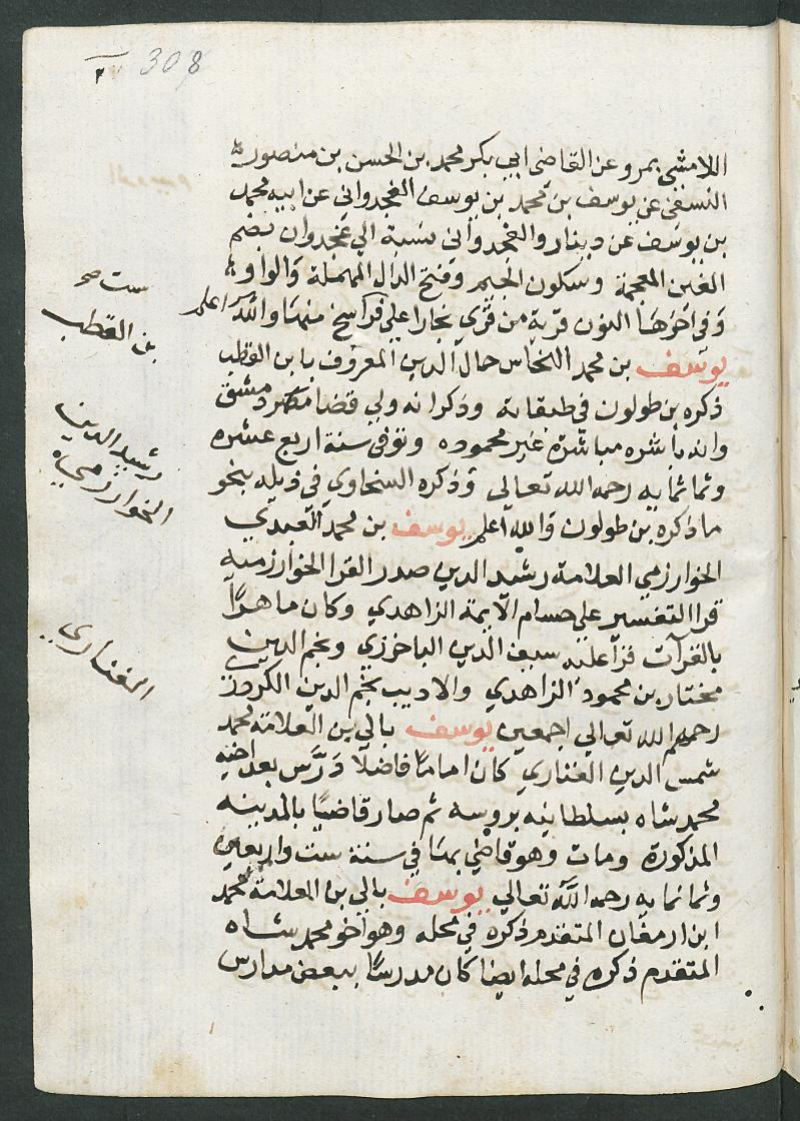 308
اللامشي بمرو عن القاضي ابي بكر محمد بن الحسن بن منصور
النسفي عن يوسف بن محمد بن يوسف الغجدواني عن ابيه محمد
بن يوسف عن دينار والغجدواني نسبة الي غجدوان بضم
الغين المعجمة وسكون الجيم وفتح الدال المهملة والواو
وفي اخرها النون قرية من قري بخارا علي فراسخ منها والله اعلم
يوسف بن محمد النحاس جمال الدين المعروف بابن القطب
ذكره بن طولون في طبقاته وذكر انه ولي قضا دمشق
وانه باشره مباشرة غير محموده وتوفي سنة اربع عشره
وثمانمايه رحمه الله تعالي وذكره السخاوي في ذيله بنحو
ما ذكره بن طولون والله اعلم يوسف بن محمد العبدي
الخوارزمي العلامة رشيد الدين صدر القرا الخوارزميه
قرا التفسير علي حسام الايمة الزاهدي وكان ماهراً
بالقرآت قرأ عليه سيف الدين الباخرزي ونجم الدين
مختار بن محمود الزاهدي والاديب نجم الدين
رحمهم الله تعالي اجمعين يوسف بالي بن العلامة محمد
شمس الدين الفناري كان اماما فاضلا درّس بعد اخيه
محمد شاه بسلطانيه بروسه ثم صار قاضيًا بالمدينه
المذكورة ومات وهو قاضي بها في سنة ست واربعين
وثمانمايه رحمه الله تعالي يوسف بالي بن العلامة محمد
ابن ارمغان المتقدم ذكره في محله وهو اخو محمد شاه
المتقدم ذكره في محله ايضا كان مدرسًا ببعض مدارس
بن القطب
رشيد الدين
الخوارزمي
الفناري